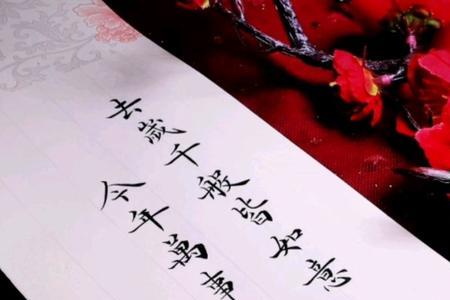 去歲千般皆如意
今年萬事